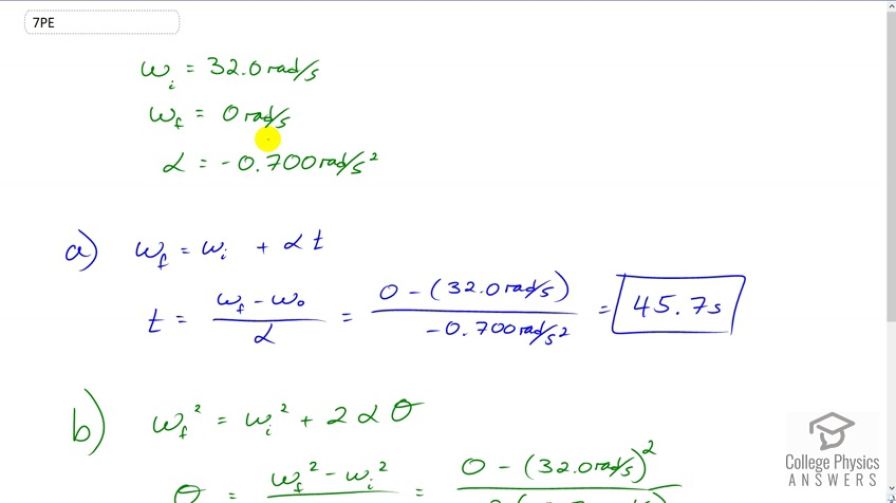 7PE
ω_i = 32.0 rad/s
ω_f = 0 rad/s
α = -0.700 rad/s²
a) ω_f = ω_i + α t
t = (ω_f - ω₀)/α = (0 - (32.0 rad/s))/(-0.700 rad/s²) = 45.7s
b) ω_f² = ω_i² + 2 α θ
θ = ω_f² - ω_i² = 0 - (32.0 rad/s)²
College Physics
ANSWERS